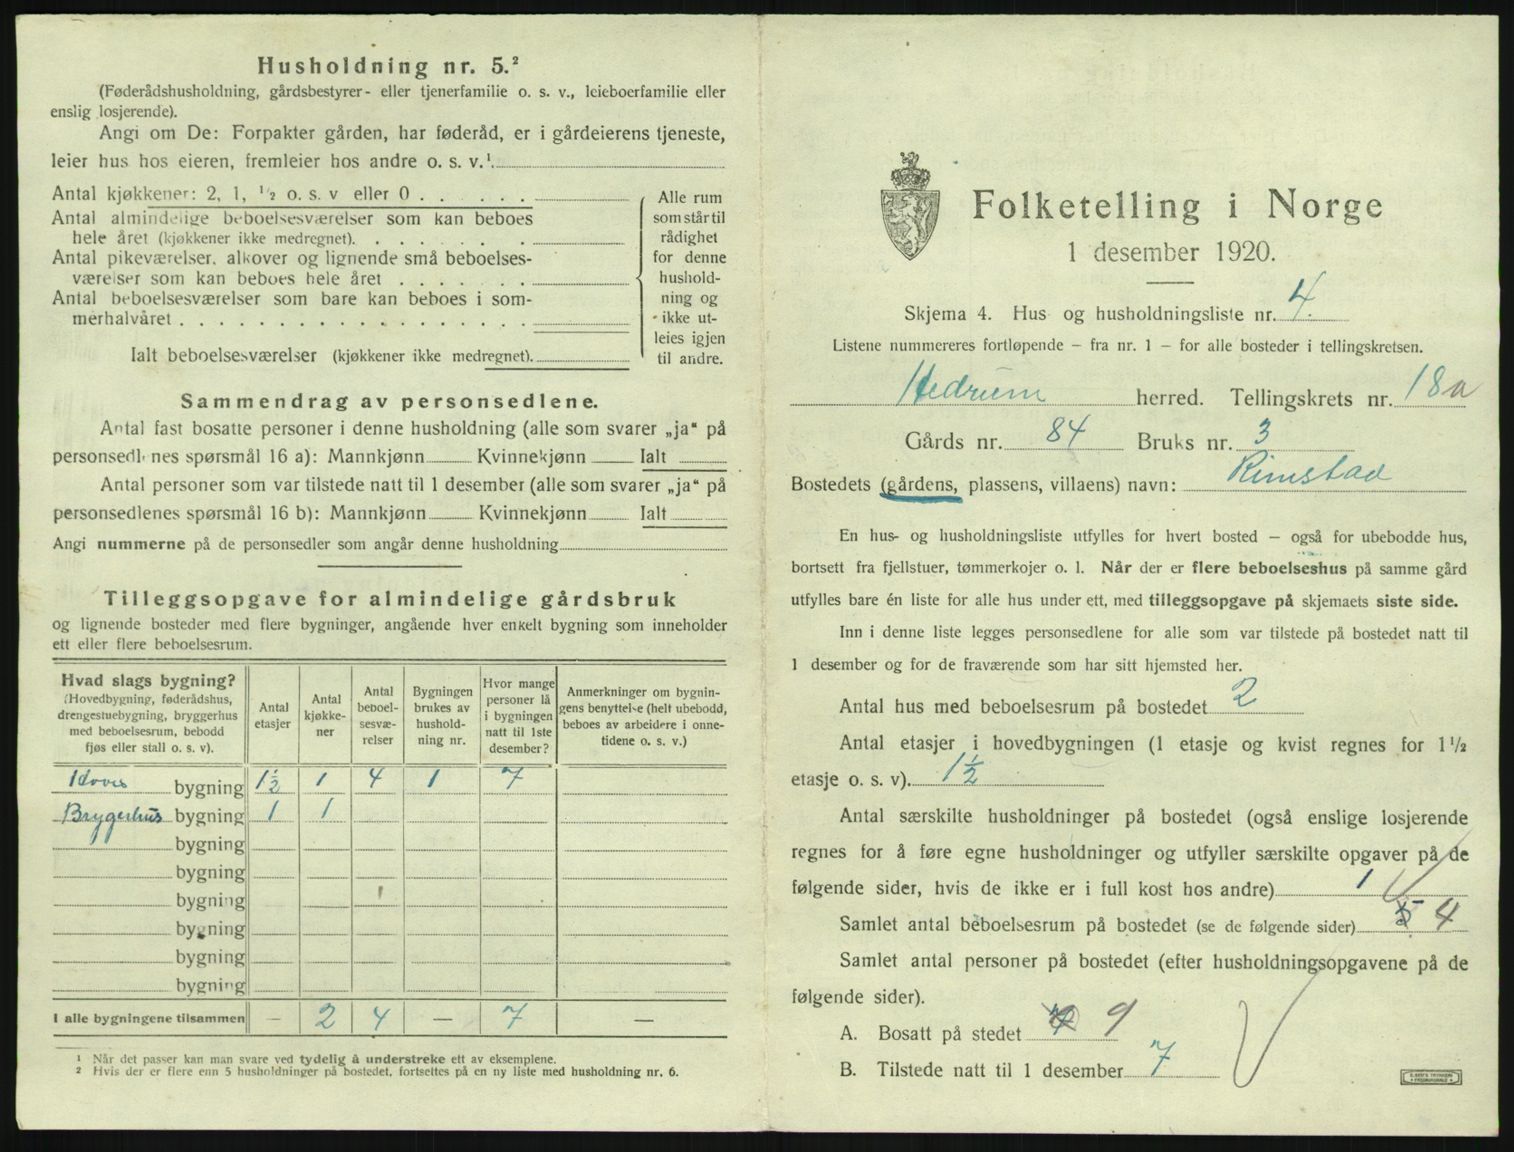 Husholdning nr. 5.²
(Føderådshusholdning, gårdsbestyrer- eller tjenerfamilie o. s. v., leieboerfamilie eller
enslig losjerende).
Angi om De: Forpakter gården, har føderåd, er i gårdeierens tjeneste,
leier hus hos eieren, fremleier hos andre o. s. v.¹
Antal kjøkkener: 2, 1, ½ o. s. v eller 0
Antal almindelige beboelsesværelser som kan beboes
hele året (kjøkkener ikke medregnet).
Antal pikeværelser, alkover og lignende små beboelses-
værelser som kan beboes hele året
Antal beboelsesværelser som bare kan beboes i som-
merhalvåret
Ialt beboelsesværelser (kjøkkener ikke medregnet).
Alle rum
som står til
rådighet
for denne
hushold-
ning og
ikke ut-
leies igjen
til andre.
Sammendrag av personsedlene.
Antal fast bosatte personer i denne husholdning (alle som svarer „ja“ på
personsedlenes spørsmål 16 a): Mannkjønn Kvinnekjønn Ialt
Antal personer som var tilstede natt til 1 desember (alle som svarer „ja“ på
personsedlenes spørsmål 16 b): Mannkjønn Kvinnekjønn Ialt
Angi nummerne på de personsedler som angår denne husholdning
Tilleggsopgave for almindelige gårdsbruk
og lignende bosteder med flere bygninger, angående hver enkelt bygning som inneholder
ett eller flere beboelsesrum.
Hvad slags bygning?
(Hovedbygning, føderådshus,
drengestuebygning, bryggerhus
med beboelsesrum, bebodd
fjøs eller stall o. s. v).
Antal
etasjer
Antal
kjøkke-
ner
Antal
beboel-
sesvæ-
relser
Bygningen
brukes av
hushold-
ning nr.
Hvor mange
personer lå
i bygningen
natt til 1ste
desember?
Anmerkninger om bygnin-
gens benyttelse (helt ubebodd,
beboes av arbeidere i onne-
tidene o. s. v.)
Hoved bygning 1½ 1 4 1 7
Brygerhus bygning 1 1
bygning
bygning
bygning
bygning
bygning
bygning
I alle bygningene tilsammen — 2 4 — 7 —
¹ Når det passer kan man svare ved tydelig å understreke ett av eksemplene.
² Hvis der er flere enn 5 husholdninger på bostedet, fortsettes på en ny liste med husholdning nr. 6.
Folketelling i Norge
1 desember 1920.
Skjema 4. Hus og husholdningsliste nr. 4.
Listene nummereres fortløpende – fra nr. 1 – for alle bosteder i tellingskretsen.
Hedrum herred. Tellingskrets nr. 18a
Gårds nr. 84 Bruks nr. 3
Bostedets (gårdens, plassens, villaens) navn: Rimstad
En hus- og husholdningsliste utfylles for hvert bosted – også for ubebodde hus,
bortsett fra fjellstuer, tømmerkojer o. l. Når der er flere beboelseshus på samme gård
utfylles bare én liste for alle hus under ett, med tilleggsopgave på skjemaets siste side.
Inn i denne liste legges personsedlene for alle som var tilstede på bostedet natt til
1 desember og for de fraværende som har sitt hjemsted her.
Antal hus med beboelsesrum på bostedet 2
Antal etasjer i hovedbygningen (1 etasje og kvist regnes for 1½
etasje o. s. v). 1½
Antal særskilte husholdninger på bostedet (også enslige losjerende
regnes for å føre egne husholdninger og utfyller særskilte opgaver på de
følgende sider, hvis de ikke er i full kost hos andre) 1
Samlet antal beboelsesrum på bostedet (se de følgende sider) 5 4
Samlet antal personer på bostedet (efter husholdningsopgavene på de
følgende sider).
A. Bosatt på stedet 9
B. Tilstede natt til 1 desember 7